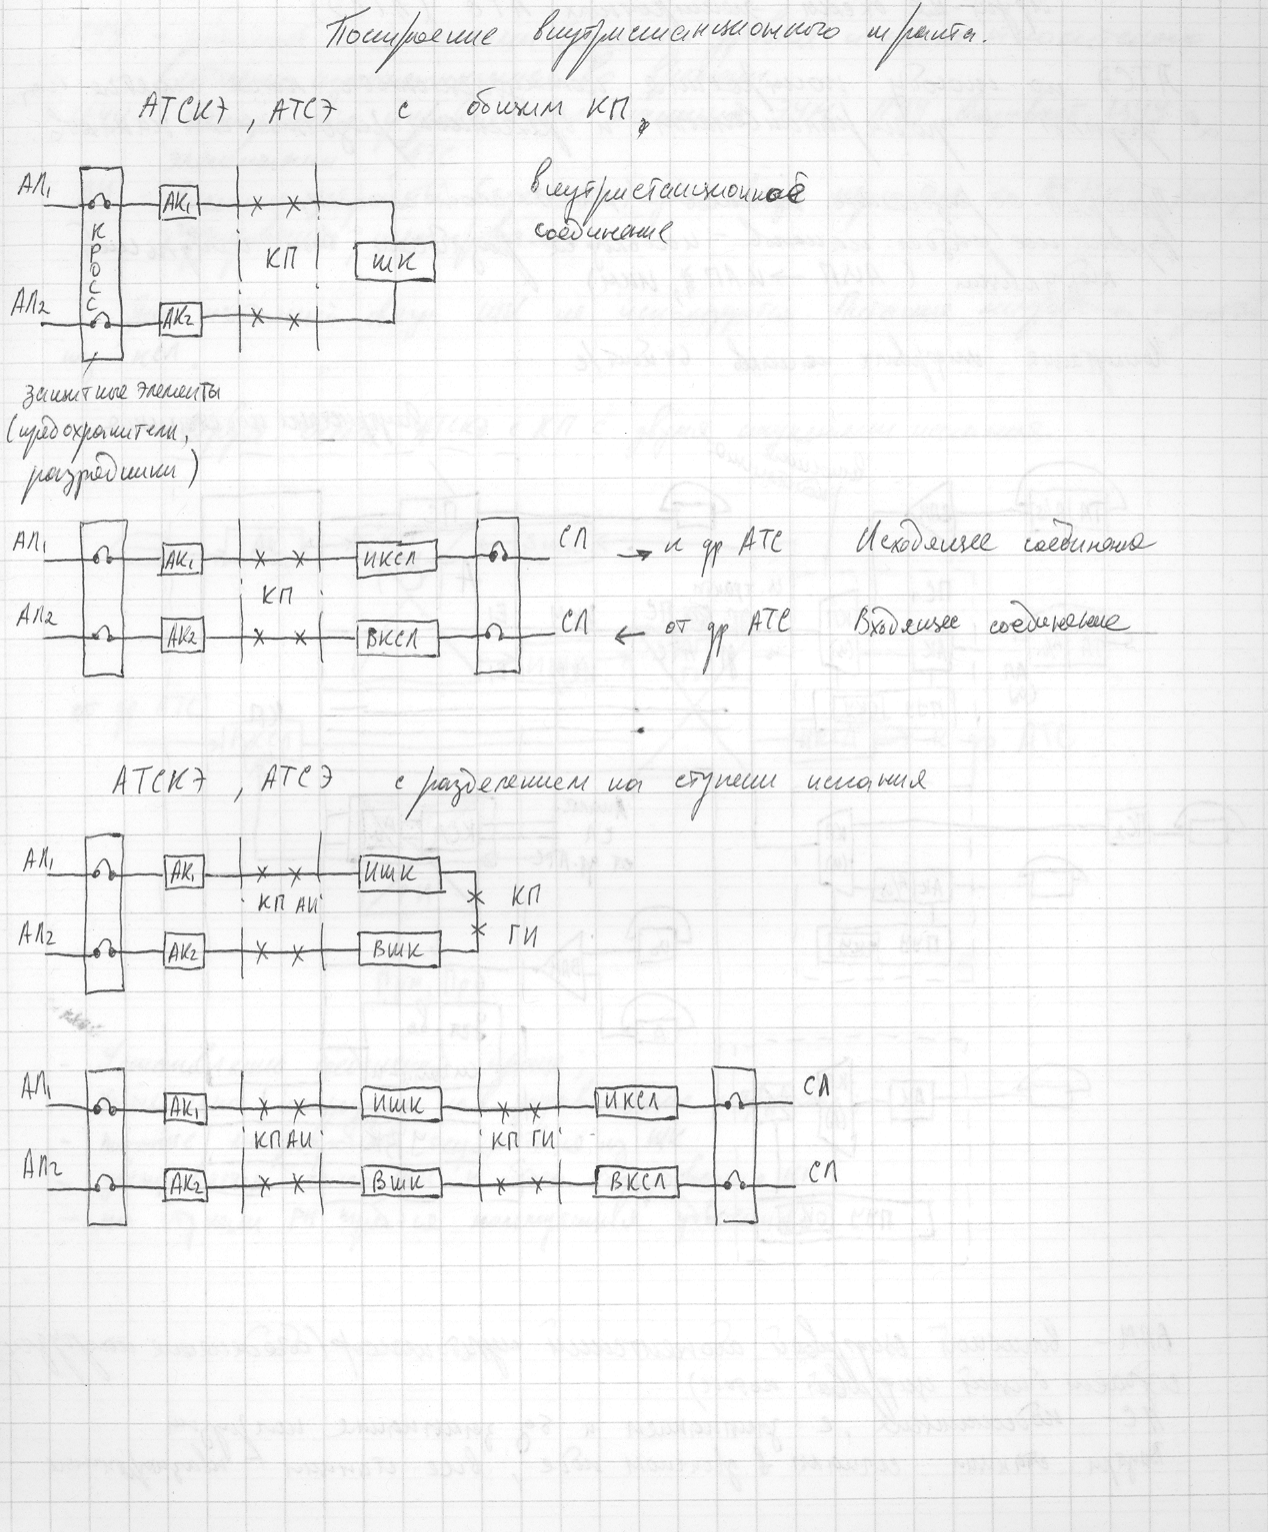 Построение внутристанционного тракта.
АТСКЭ, АТСЭ с общим КП
АЛ1 АК1
КРОСС
КП
ШК
внутристанционное
соединение
АЛ2 АК2
защитные элементы
(предохранители,
разрядники)
АЛ1 АК1 ИКСЛ СЛ → к др АТС Исходящее соединение
КП
АЛ2 АК2 ВКСЛ СЛ ← от др АТС Входящее соединение
АТСКЭ, АТСЭ с разделением на ступени искания
АЛ1 АК1 ИШК
КП АИ
КП
ГИ
АЛ2 АК2 ВШК
АЛ1 АК1 ИШК ИКСЛ СЛ
КП АИ КП ГИ
АЛ2 АК2 ВШК ВКСЛ СЛ